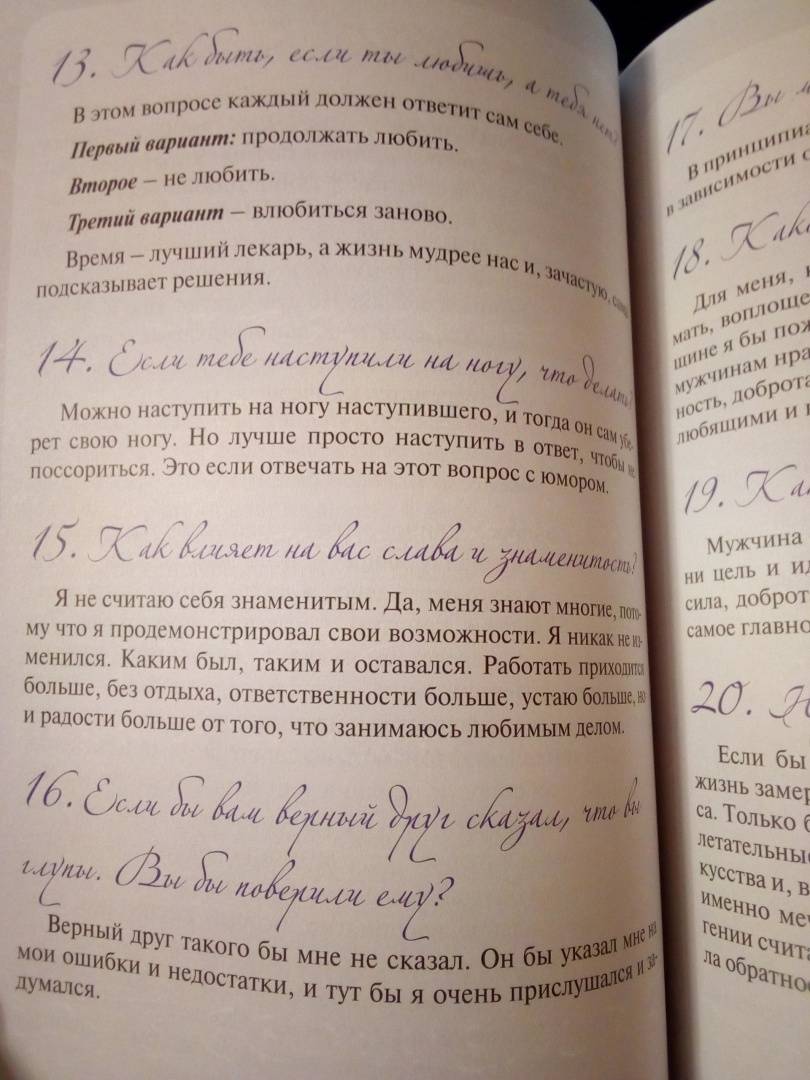 13. Как быть, если ты любишь, а тебя нет?
В этом вопросе каждый должен ответит сам себе.
Первый вариант: продолжать любить.
Второе – не любить.
Третий вариант – влюбиться заново.
Время – лучший лекарь, а жизнь мудрее нас и, зачастую, сама
подсказывает решения.
14. Если тебе наступили на ногу, что делать?
Можно наступить на ногу наступившего, и тогда он сам убе-
рет свою ногу. Но лучше просто наступить в ответ, чтобы не
поссориться. Это если отвечать на этот вопрос с юмором.
15. Как влияет на вас слава и знаменитость?
Я не считаю себя знаменитым. Да, меня знают многие, пото-
му что я продемонстрировал свои возможности. Я никак не из-
менился. Каким был, таким и оставался. Работать приходится
больше, без отдыха, ответственности больше, устаю больше, но
и радости больше от того, что занимаюсь любимым делом.
16. Если бы вам верный друг сказал, что вы
глупы. Вы бы поверили ему?
Верный друг такого бы мне не сказал. Он бы указал мне на
мои ошибки и недостатки, и тут бы я очень прислушался и за-
думался.
17. Вы
В принципиа
в зависимости
18. Как
Для меня,
мать, воплоще
шине я бы пож
мужчинам нра
ность, доброта
любящими и
19. Ка
Мужчина
ни цель и ид
сила, доброт
самое главно
20.
Если бы
жизнь замер
са. Только б
летательны
кусства и, в
именно меч
гении счита
ла обратнос